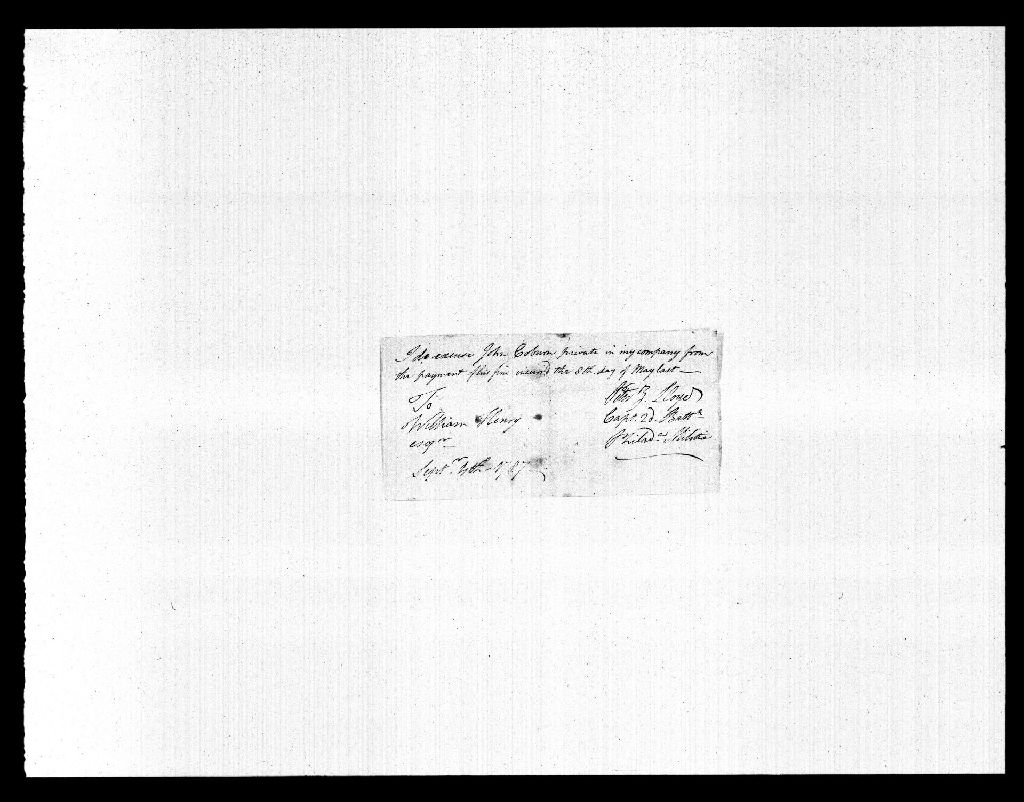 I do excuse John Coburn private in my company from
the payment of his fine incurr'd the 8th day of May last —
To
William Henry
esqr
Peter Z. Lloyd
Capt. 2d. Battn
Philada Militia
Septr 4th 1787